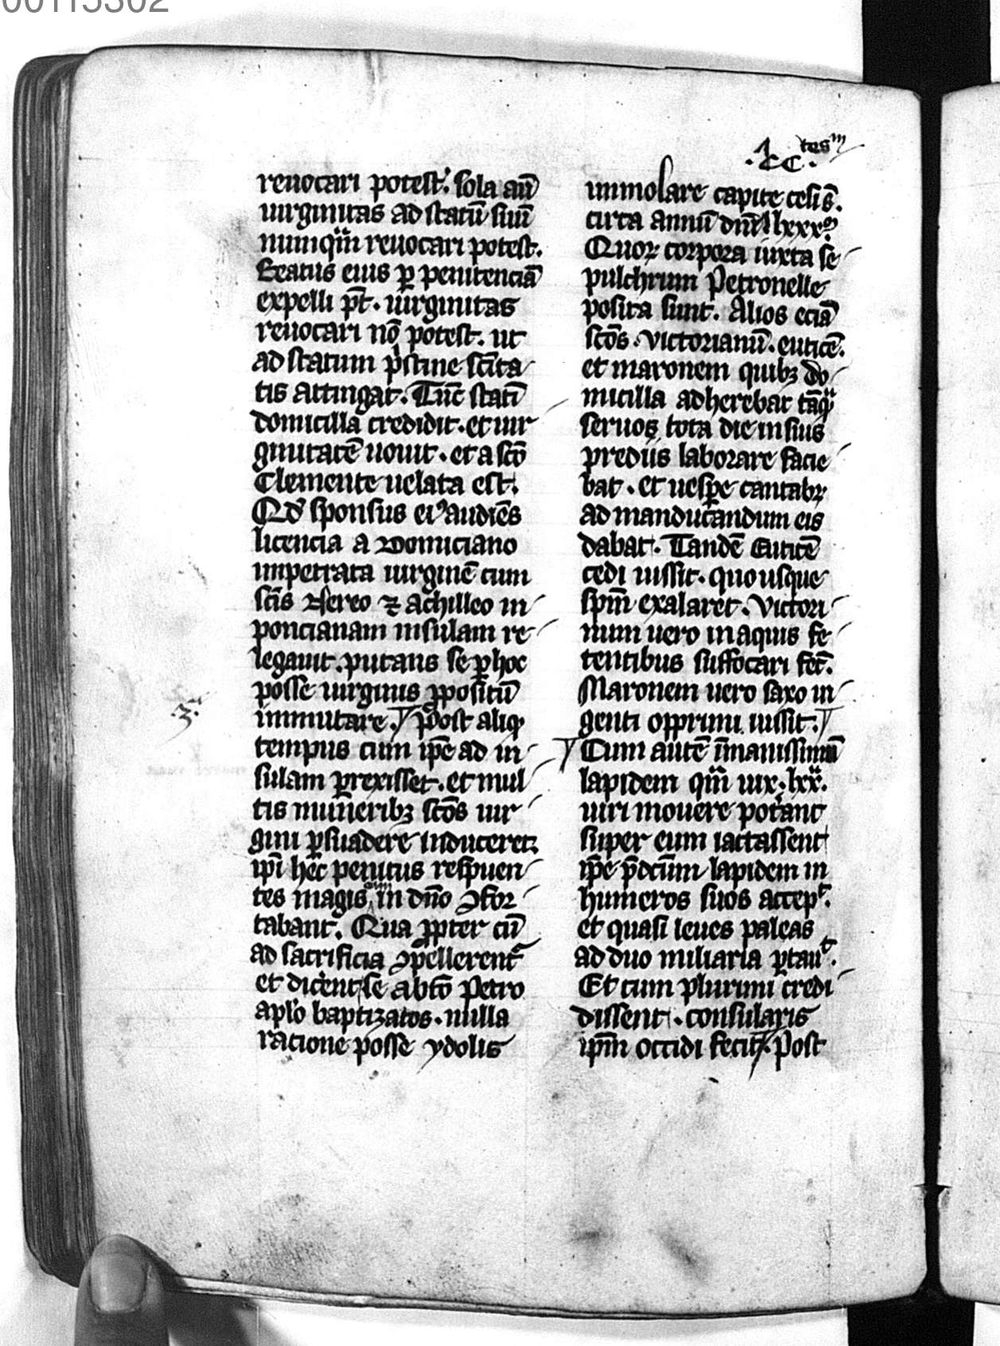 00115302
.LCC. tas m
reuocari potest. sola aū
uirginitas ad statū suū
nunqͣm reuocari potest.
Reatus eius ꝑ penitenciā
expelli pt̄. uirginitas
reuocari nō potest. ut
ad statum pristine sc̄ita
tis attingat. Tūc statī
domicilla credidit. et uir
ginitatē uouit. et a sc̄o
Clemente uelata est.
Qd̄ sponsus ei9 audiēs
licencia a Domiciano
impetrata uirginē cum
sc̄is Nereo ⁊ achilleo in
poncianam insulam re
legauit. putans se ꝑ hoc
posse uirginis ꝓpositū
immutare. Post aliqͦ
tempus cum ip̄e ad in
sulam ꝑrexisset. et mul
tis muneribꝫ sc̄os uir
gini ꝑsuadere induceret
ip̄i hec penitus respuen
tes magis eam in dn̄o ꝯfor
tabant. Qua ꝓpter cū
ad sacrificia ꝯpellerent᷑
et dicent se ab scō Petro
apl̄o baptizatos. nulla
racione posse ydolis
immolare capite cesi s̄.
circa annū dnī lxxxͦ.
Quoꝝ corpora iuxta se
pulchrum Petronelle
posita sunt. Alios eciā
sc̄os. victorianū. euticē.
et maronem quibꝫ do
micilla adherebat tāqͣ
seruos tota die in suis
prediis laborare facie
bat. et uespe cantabꝝ
ad manducandum eis
dabat. Tandē Euticē
cedi iussit. quousque
spm̄ exalaret. Victori
num uero in aquis fe
tentibus suffocari fec̄.
Maronem uero saxo in
genti opprimi iussit.
Cum autē īmanissimū
lapidem qͣm uix lxx.
uiri mouere poterant
super eum iactassent
ip̄e p̄dcūm lapidem in
humeros suos accepͭ.
et quasi leues paleas
ad duo miliaria ꝑtauͭ.
Et cum plurimi credi
dissent. consularis
ipm̄ occidi fecit. Post
3.